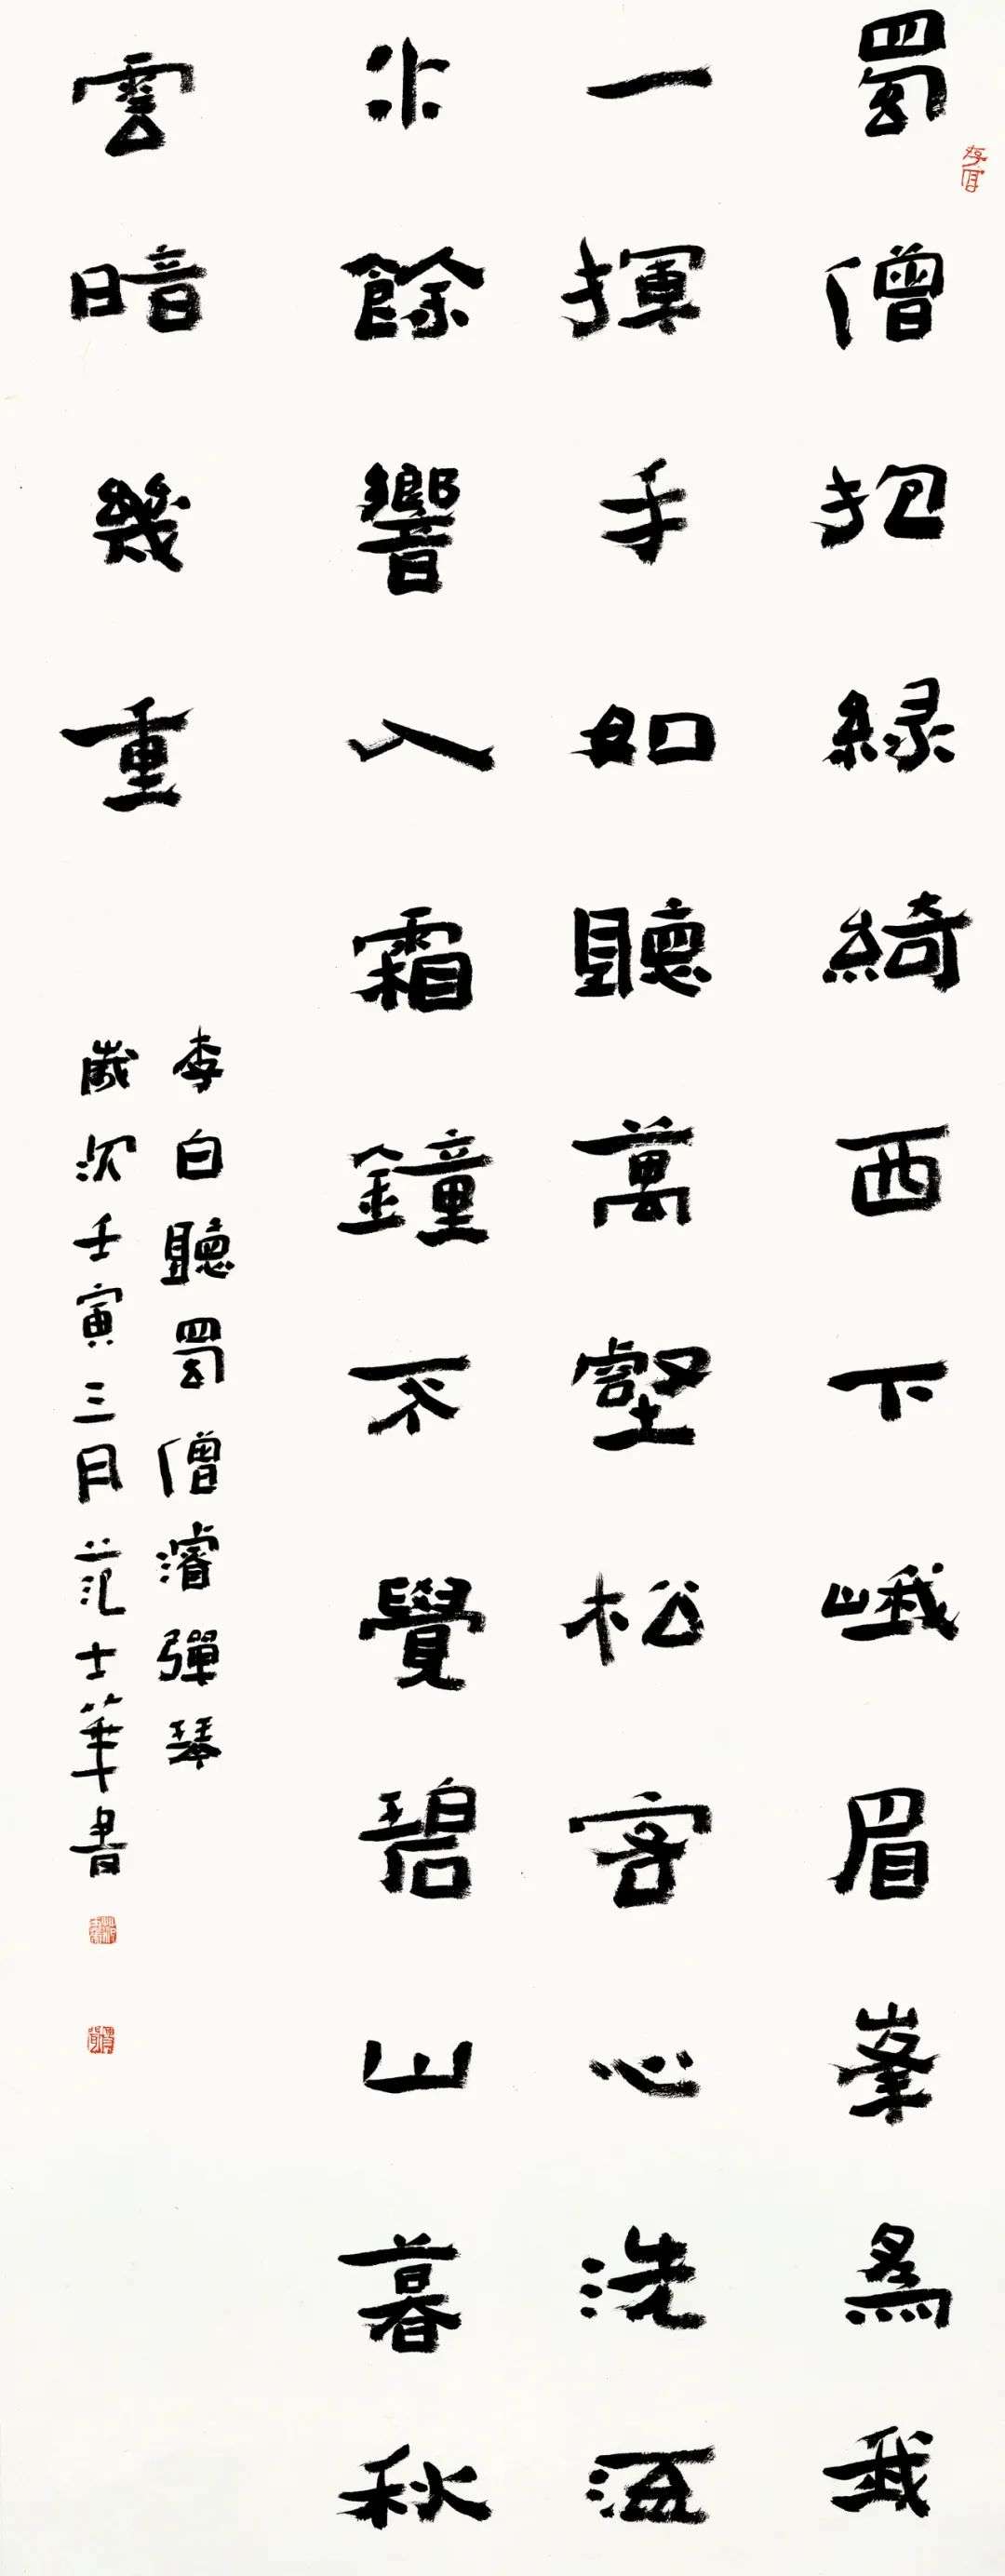 蜀僧抱緑綺西下峨眉峯爲我
一揮手如聽萬壑松客心洗流
水餘響入霜鐘不覺碧山暮秋
雲暗幾重
李白聽蜀僧濬彈琴
歲次壬寅三月范士華書